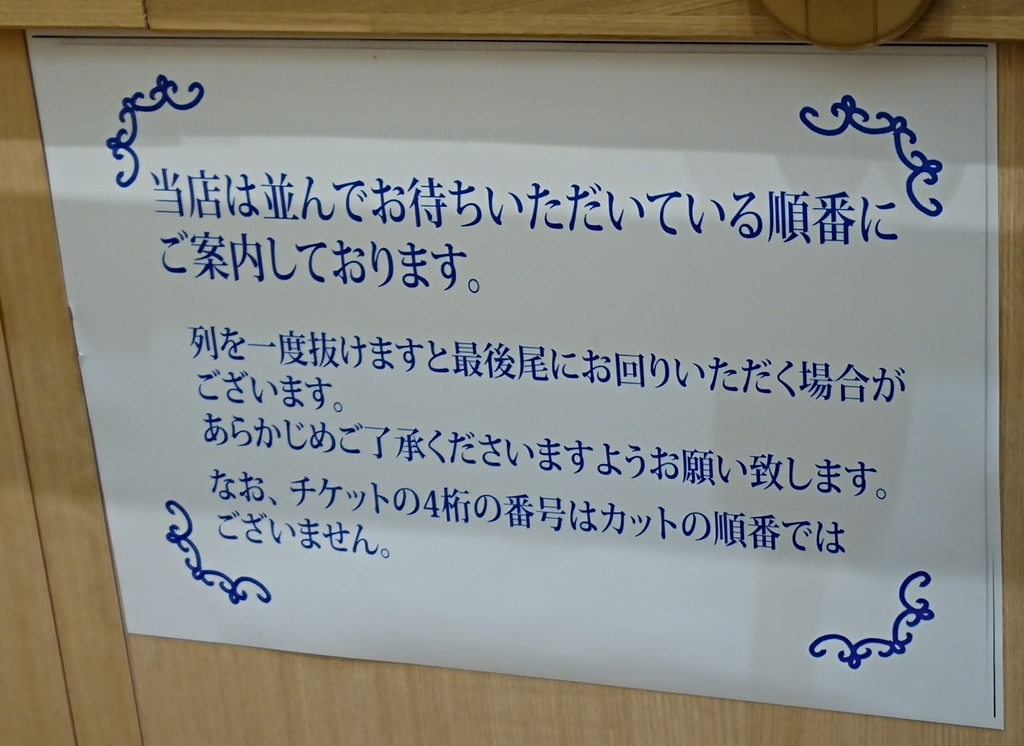 当店は並んでお待ちいただいている順番に
ご案内しております。
列を一度抜けますと最後尾にお回りいただく場合が
ございます。
あらかじめご了承くださいますようお願い致します。
なお、チケットの4桁の番号はカットの順番では
ございません。